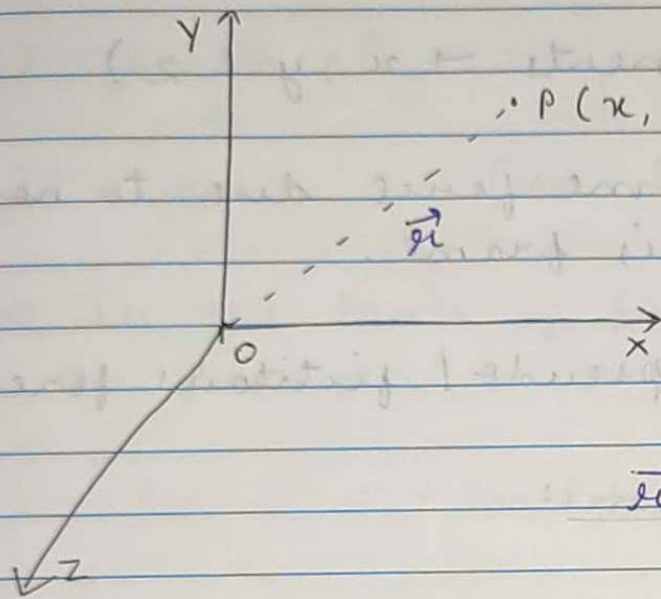 Y
P (x,
r
O
X
r
Z